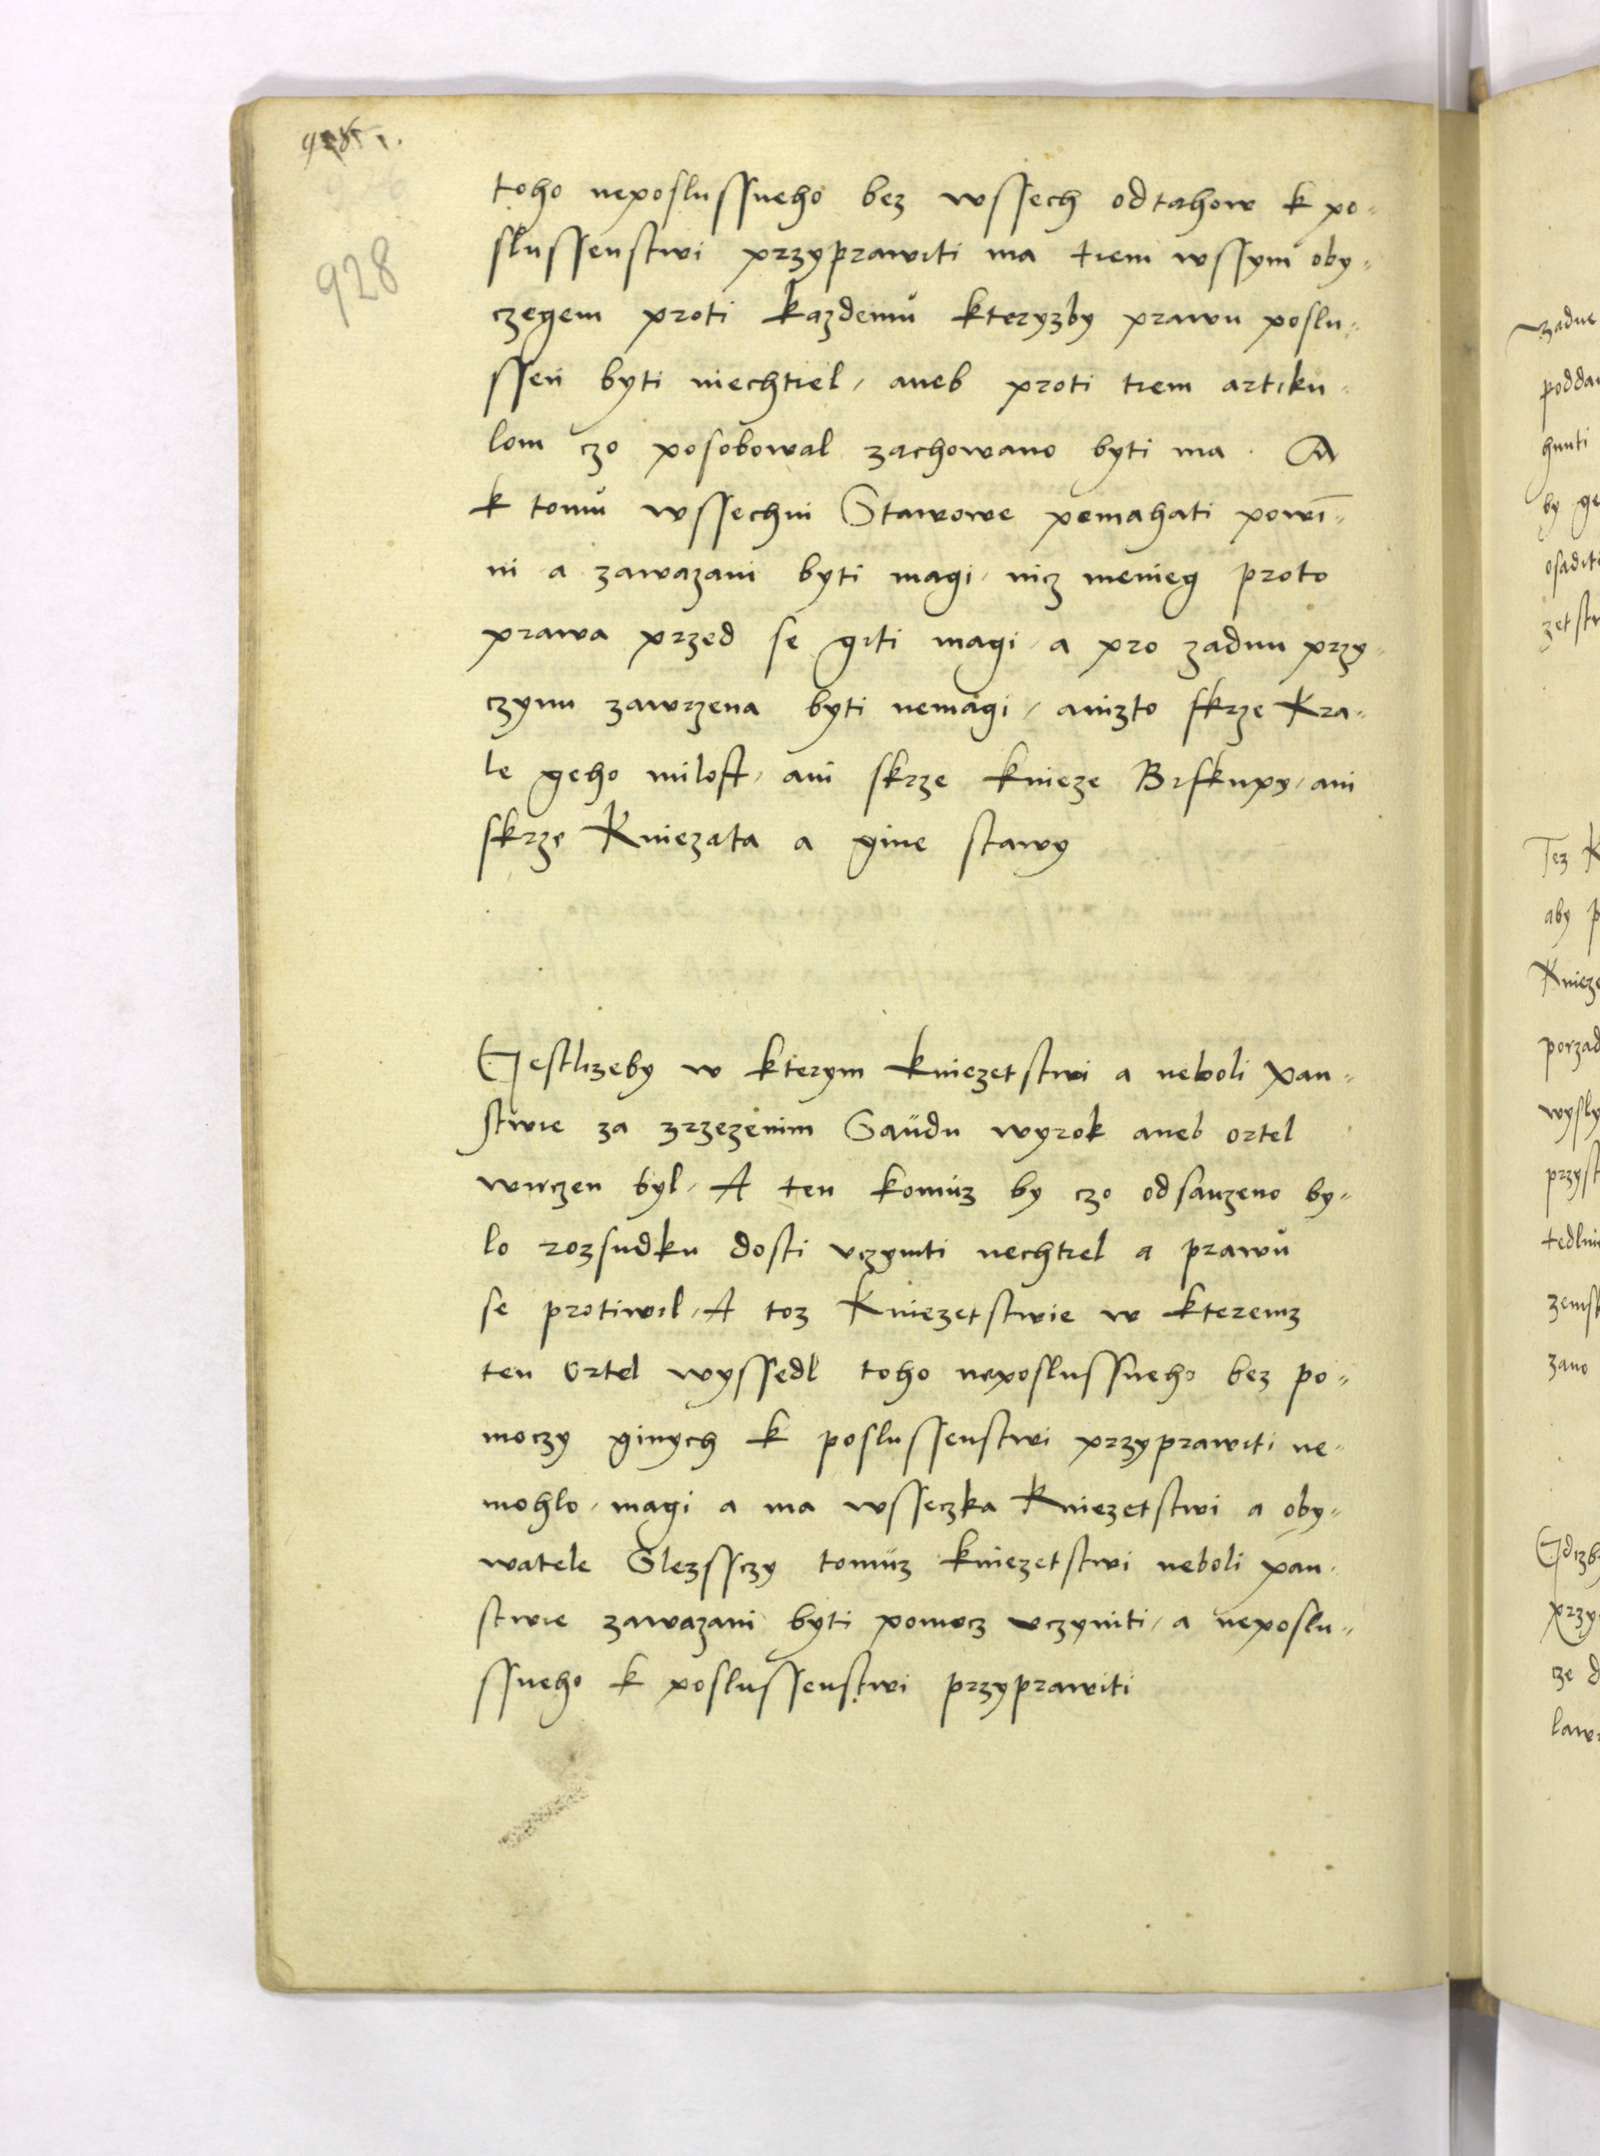 928
toho neposlussneho bez wssech odtahow k po-
slussenstwi przyprawiti ma tiem wssym oby-
czegem proti kazdemu kteryzby prawu poslu-
ssen byti niechtiel, aneb proti tiem artiku-
lom czo posobowal zachowano byti ma. A
k tomu wssechni Stawowe pomahati powi-
ni a zawazani byti magi, nicz menieg proto
prawa przed se giti magi, a pro zadnu przy-
czynu zawrzena byti nemagi, anizto skrze Kra-
le geho milost, ani skrze knieze Biskupy, ani
skrze Kniezata a gine stawy
Gestlizeby w kterym kniezetstwi a neboli pan-
stwie za zrzezenim Saudu wyrok aneb ortel
wirczen byl, A ten komuz by czo odsauzeno by-
lo rozsudku dosti vczyniti nechtiel a prawu
se protiwil, A toz Kniezetstwie w kteremz
ten Ortel wyssedl toho neposlussneho bez po-
moczy ginych k poslussenstwi przyprawiti ne-
mohlo, magi a ma wsseczka Kniezetstwi a oby-
watele Slezssczy tomuz kniezetstwi neboli pan-
stwie zawazani byti pomocz vczyniti, a neposlu-
ssneho k poslussenstwi przyprawiti
zadne
hnuti
by ge
osaditi
Tez K
aby p
Knieze
porzad
wysly
przyst
zemsk
zano
Gdizby
przy
cze d
lawi